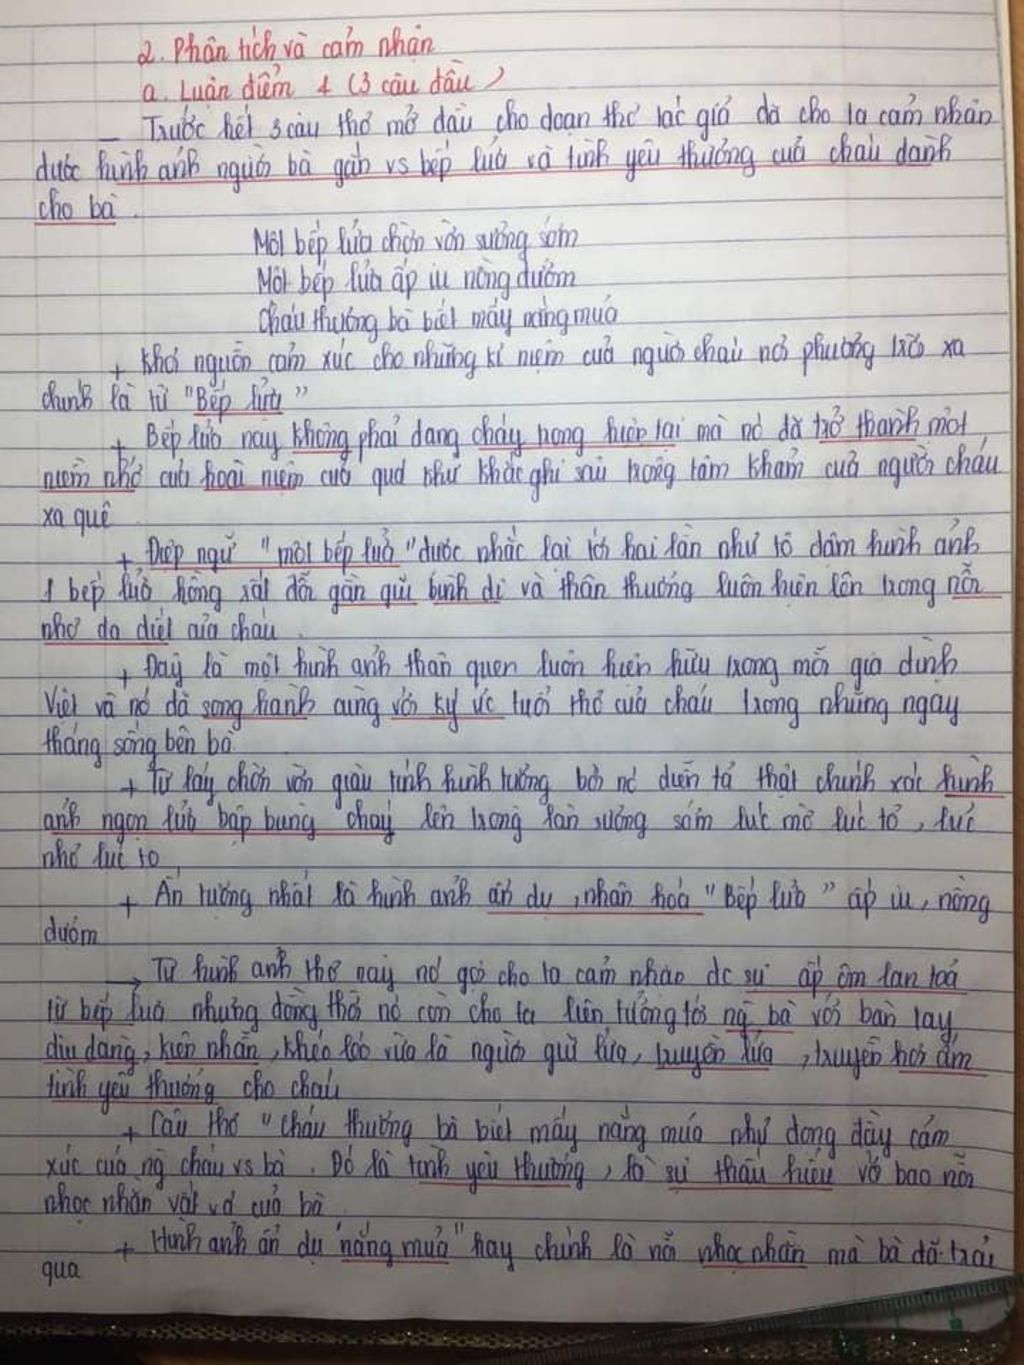 2. Phân tích và cảm nhận
a. Luận điểm 1 (3 câu đầu)
_ Trước hết 3 câu thơ mở đầu cho đoạn thơ tác giả đã cho ta cảm nhận
được hình ảnh người bà gắn vs bếp lửa và tình yêu thương của cháu dành
cho bà.
Một bếp lửa chờn vờn sương sớm
Một bếp lửa ấp iu nồng đượm
Cháu thương bà biết mấy nắng mưa
+ Khơi nguồn cảm xúc cho những kỉ niệm của người cháu nơi phương trời xa
chính là từ "Bếp lửa"
+ Bếp lửa này không phải đang cháy trong hiện tại mà nó đã trở thành một
niềm nhớ của hoài niệm của quá khứ khắc ghi sâu trong tâm khảm của người cháu
xa quê
+ Điệp ngữ "một bếp lửa" được nhắc lại tới hai lần như tô đậm hình ảnh
1 bếp lửa hồng rất đỗi gần gũi bình dị và thân thương luôn hiện lên trong nỗi
nhớ da diết của cháu.
+ Đây là một hình ảnh thân quen luôn hiện hữu trong mỗi gia đình
Việt và nó đã song hành cùng với ký ức tuổi thơ của cháu trong những ngày
tháng sống bên bà
+ Từ láy chờn vờn giàu tính hình tượng bởi nó diễn tả thật chính xác hình
ảnh ngọn lửa bập bùng cháy lên trong làn sương sớm lúc mờ lúc tỏ, lúc
nhỏ lúc to
+ Ấn tượng nhất là hình ảnh ẩn dụ, nhân hoá "Bếp lửa" ấp iu, nồng
đượm
→ Từ hình ảnh thơ này nó gợi cho ta cảm nhận dc sự ấp ôm lan toả
từ bếp lửa nhưng đồng thời nó còn cho ta liên tưởng tới ng bà với bàn tay
dịu dàng, kiên nhẫn, khéo léo vừa là người giữ lửa, truyền lửa, truyền hơi ấm
tình yêu thương cho cháu
+ Câu thơ "cháu thương bà biết mấy nắng mưa như dong đầy cảm
xúc của ng cháu vs bà. Đó là tình yêu thương, là sự thấu hiểu về bao nỗi
nhọc nhằn vất vả của bà
+ Hình ảnh ẩn dụ "nắng mưa" hay chính là nỗi nhọc nhằn mà bà đã trải
qua